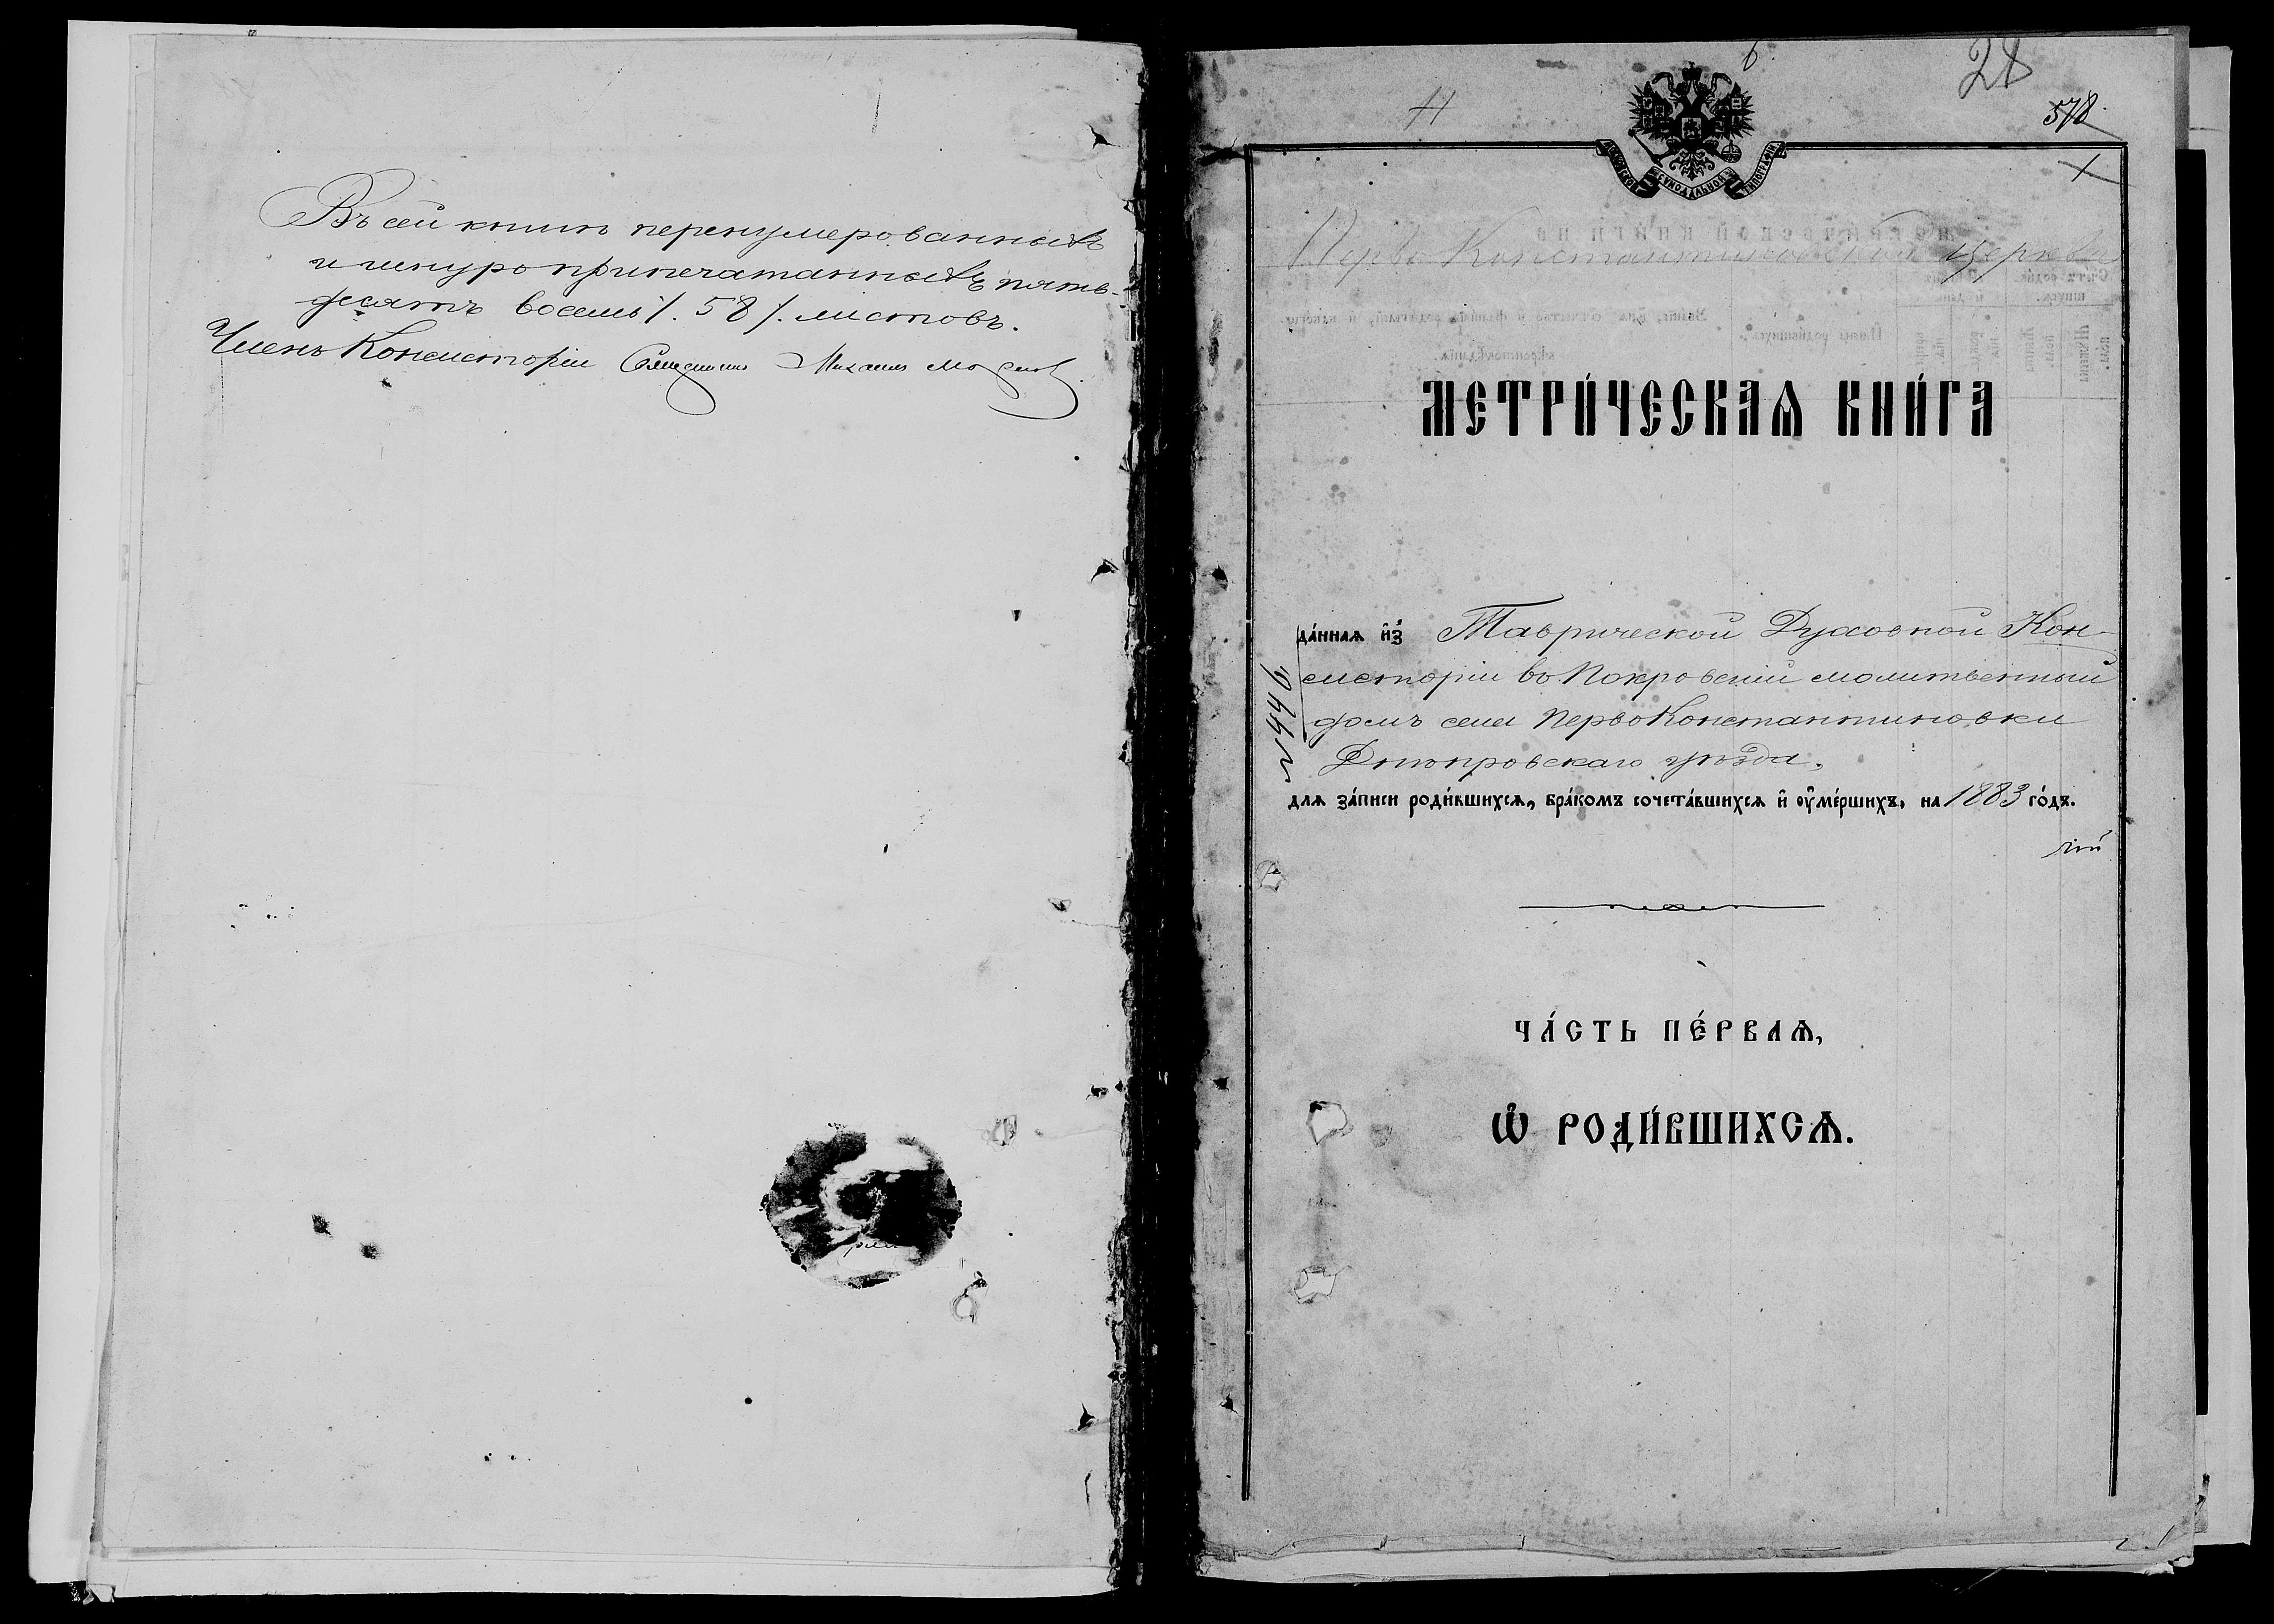 Въ сей книгѣ перенумерованныхъ
и шнуроприпечатанныхъ пять-
десятъ восемь /. 58 /. листовъ.
Членъ Консисторіи Священникъ Михаилъ
28
578
МОСКОВСКОЙ СѴНОДАЛЬНОЙ ТИПОГРАФІИ
Перво Константиновской церкви
МЕТРИ́ЧЕСКАѦ КНИ́ГА
да́ннаѧ и҆з̾ Таврической Духовной Кон-
систоріи во Покровскій молитвенный
домъ села ПервоКонстантиновки
Днѣпровскаго уѣзда.
длѧ за́писи роди́вшихсѧ, бра́комъ сочета́вшихсѧ и҆ ᲂу҆ме́ршихъ, на 1883 го́дъ.
ЧА́СТЬ ПЕ́РВАѦ,
Ѡ҆ РОДИ́ВШИХСѦ.